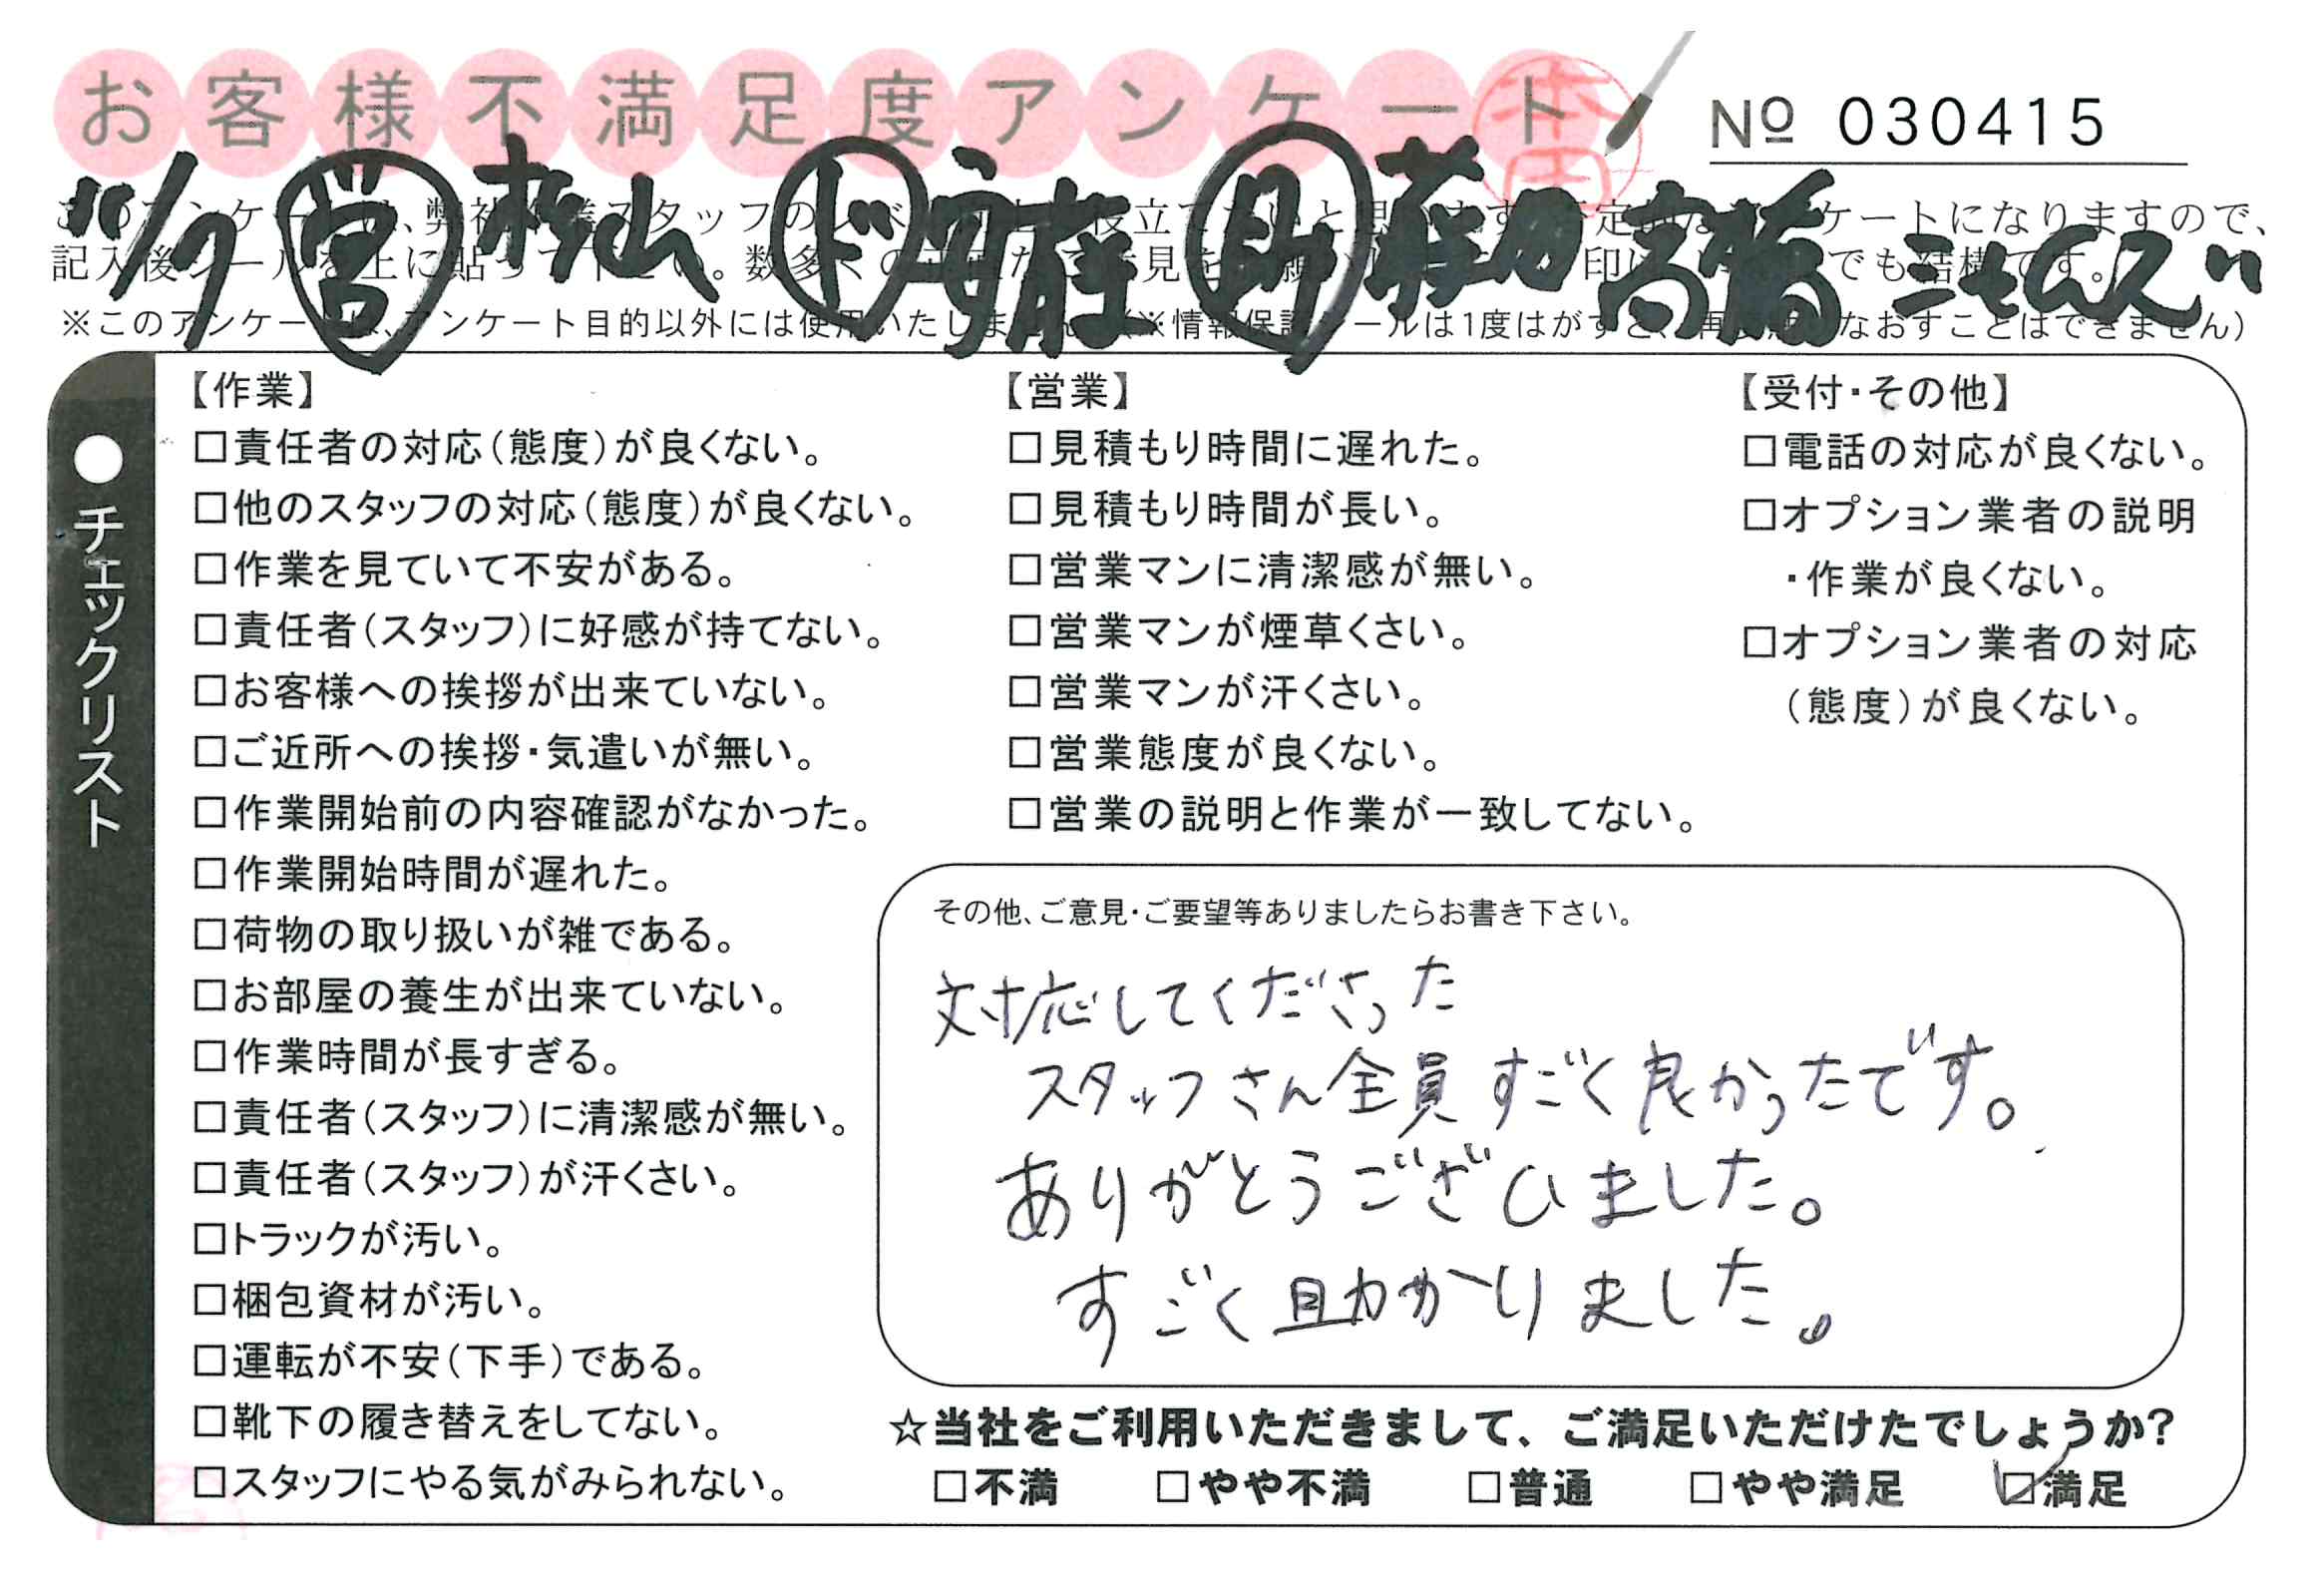 お客様不満足度アンケート
№ 030415
11/7 営 杉山 ド 安藤 助 高橋
※このアンケートは、アンケート目的以外には使用いたしません。(※情報保護シールは1度はがすと、再度貼りなおすことはできません)
●チェックリスト
【作業】
□責任者の対応(態度)が良くない。
□他のスタッフの対応(態度)が良くない。
□作業を見ていて不安がある。
□責任者(スタッフ)に好感が持てない。
□お客様への挨拶が出来ていない。
□ご近所への挨拶・気遣いが無い。
□作業開始前の内容確認がなかった。
□作業開始時間が遅れた。
□荷物の取り扱いが雑である。
□お部屋の養生が出来ていない。
□作業時間が長すぎる。
□責任者(スタッフ)に清潔感が無い。
□責任者(スタッフ)が汗くさい。
□トラックが汚い。
□梱包資材が汚い。
□運転が不安(下手)である。
□靴下の履き替えをしてない。
□スタッフにやる気がみられない。
【営業】
□見積もり時間に遅れた。
□見積もり時間が長い。
□営業マンに清潔感が無い。
□営業マンが煙草くさい。
□営業マンが汗くさい。
□営業態度が良くない。
□営業の説明と作業が一致してない。
【受付・その他】
□電話の対応が良くない。
□オプション業者の説明
・作業が良くない。
□オプション業者の対応
(態度)が良くない。
その他、ご意見・ご要望等ありましたらお書き下さい。
対応してくださった
スタッフさん全員すごく良かったです。
ありがとうございました。
すごく助かりました。
☆当社をご利用いただきまして、ご満足いただけたでしょうか?
□不満 □やや不満 □普通 □やや満足 ☑満足